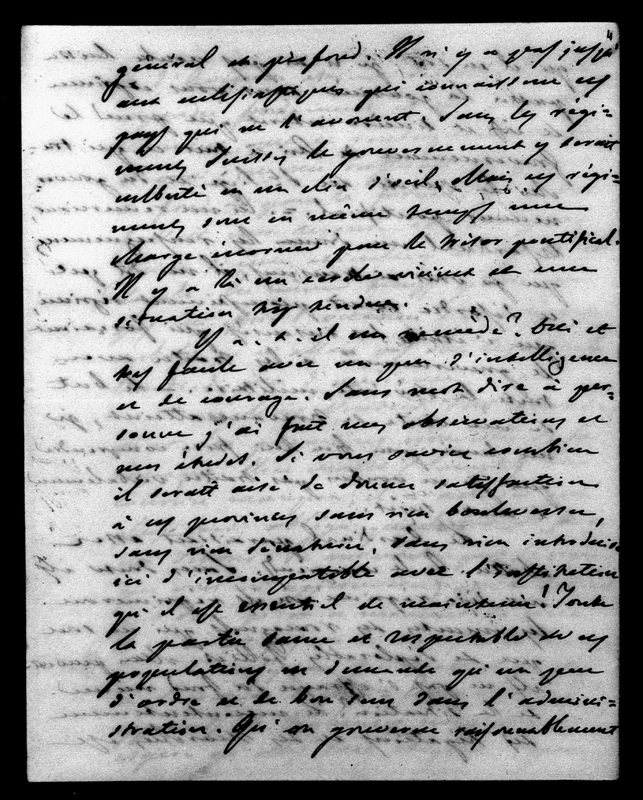 4
général et profond. Il n'y a pas jusqu'
aux ecclésiastiques qui connaissent ces
pays qui ne l'avouent. Sans les régi-
ments Suisses le gouvernement y serait
culbuté en un clin d'oeil. Mais ces régi-
ments sont en même temps une
charge énorme pour le trésor pontifical.
Il y a là un cercle vicieux et une
situation très tendue.
Y a-t-il un remède? Oui et
très facile avec un peu d'intelligence
et de courage. Sans mot dire à per-
sonne j'ai fait mes observations et
mes études. Si vous saviez combien
il serait aisé de donner satisfaction
à ces provinces sans rien bouleverser,
sans rien dénaturer, sans rien introduire
ici d'incompatible avec l'institution
qu'il est essentiel de maintenir! Toute
la partie saine et respectable de ces
populations ne demande qu'un peu
d'ordre et de bon sens dans l'admini-
stration. Qu'on gouverne raisonnablement